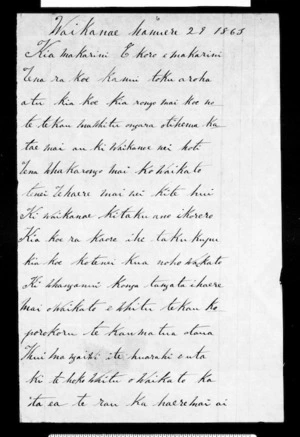 Waikanae Hanuere 29 1863
Kia Makarini E koro e makarini
Tena ra koe ka nui toku aroha
atu kia koe Kia rongo mai koe no
te te kau ongara o tihema ka
tae mai au ki waikanae nei hoki
Tena whakarongo mai ko waikato
tenei te haere mai nei ki te hui
Ki waikanae ki taku ano ikorero
Kia koe ra kaore ihe taku kupu
kia koe ko tenei kua noho waikato
Ki Whanganui konga tangata i haere
mai o waikato e whitu te kau ko
porokoru te kaumatua otona
Ihui ma ite huarahi e uta
ki te hoko whitu o waikato ka
ta ea te rau ka haere mai ai